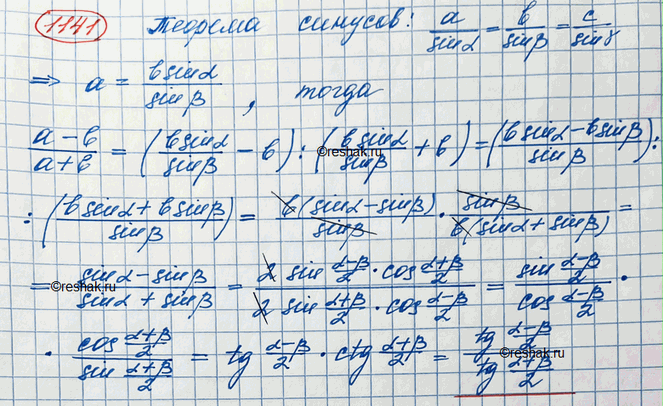 1141 Теорема синусов: a/sinα = b/sinβ = c/sinγ
=> a = b sinα / sinβ , тогда
(a-b)/(a+b) = (b sinα / sinβ - b) : (b sinα / sinβ + b) = ((b sinα - b sinβ)/sinβ) :
: ((b sinα + b sinβ)/sinβ) = b(sinα - sinβ)/sinβ · sinβ/(b(sinα + sinβ)) =
= (sinα - sinβ)/(sinα + sinβ) = (2 sin (α-β)/2 · cos (α+β)/2)/(2 sin (α+β)/2 · cos (α-β)/2) = (sin (α-β)/2)/(cos (α-β)/2) ·
· (cos (α+β)/2)/(sin (α+β)/2) = tg (α-β)/2 · ctg (α+β)/2 = (tg (α-β)/2)/(tg (α+β)/2)
©reshak.ru
©reshak.ru
©reshak.ru